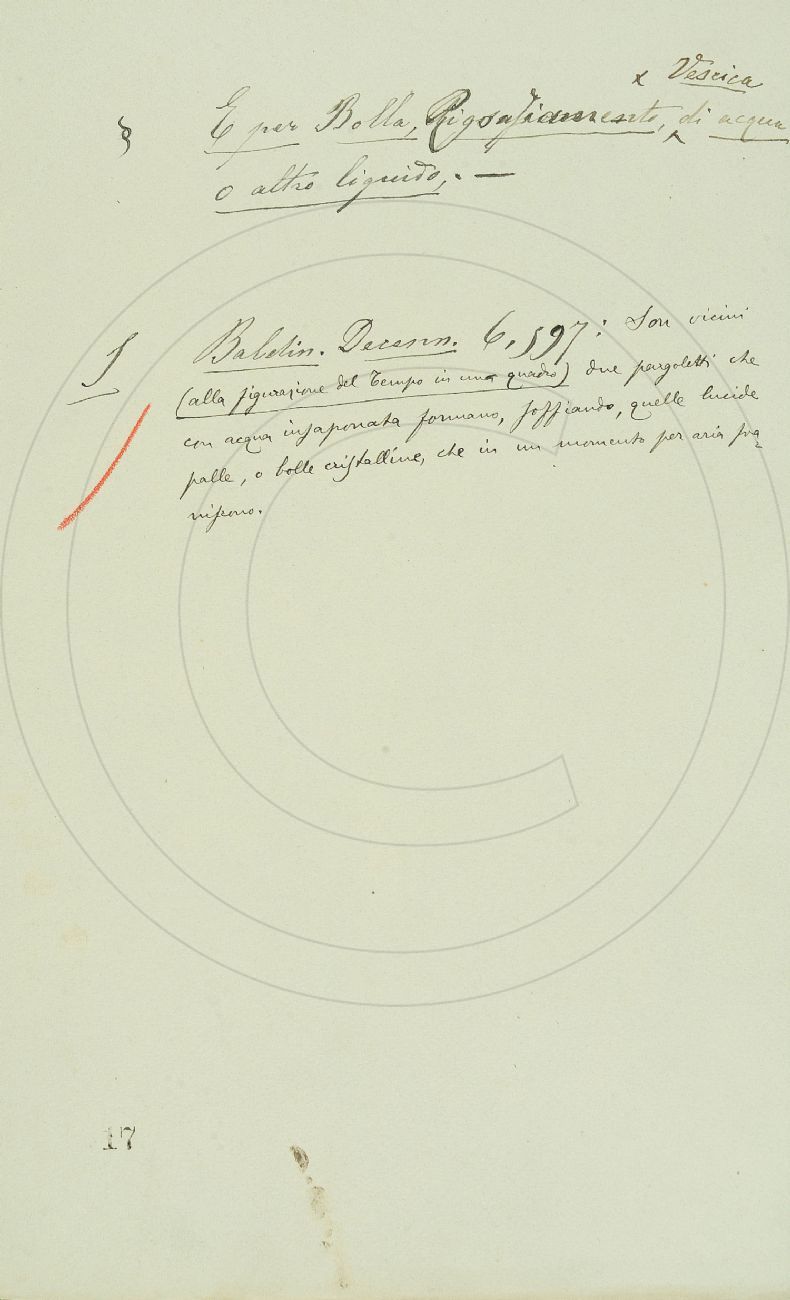 x Vescica
§ E per Bolla, Rigonfiamento, ^ di acqua
o altro liquido. —
S Baldin. Decenn. 6, 597: Son vicini
(alla figurazione del Tempo in un quadro) due pargoletti che
con acqua insaponata formano, soffiando, quelle lucide
palle, o bolle cristalline, che in un momento per aria sva-
niscono.
17